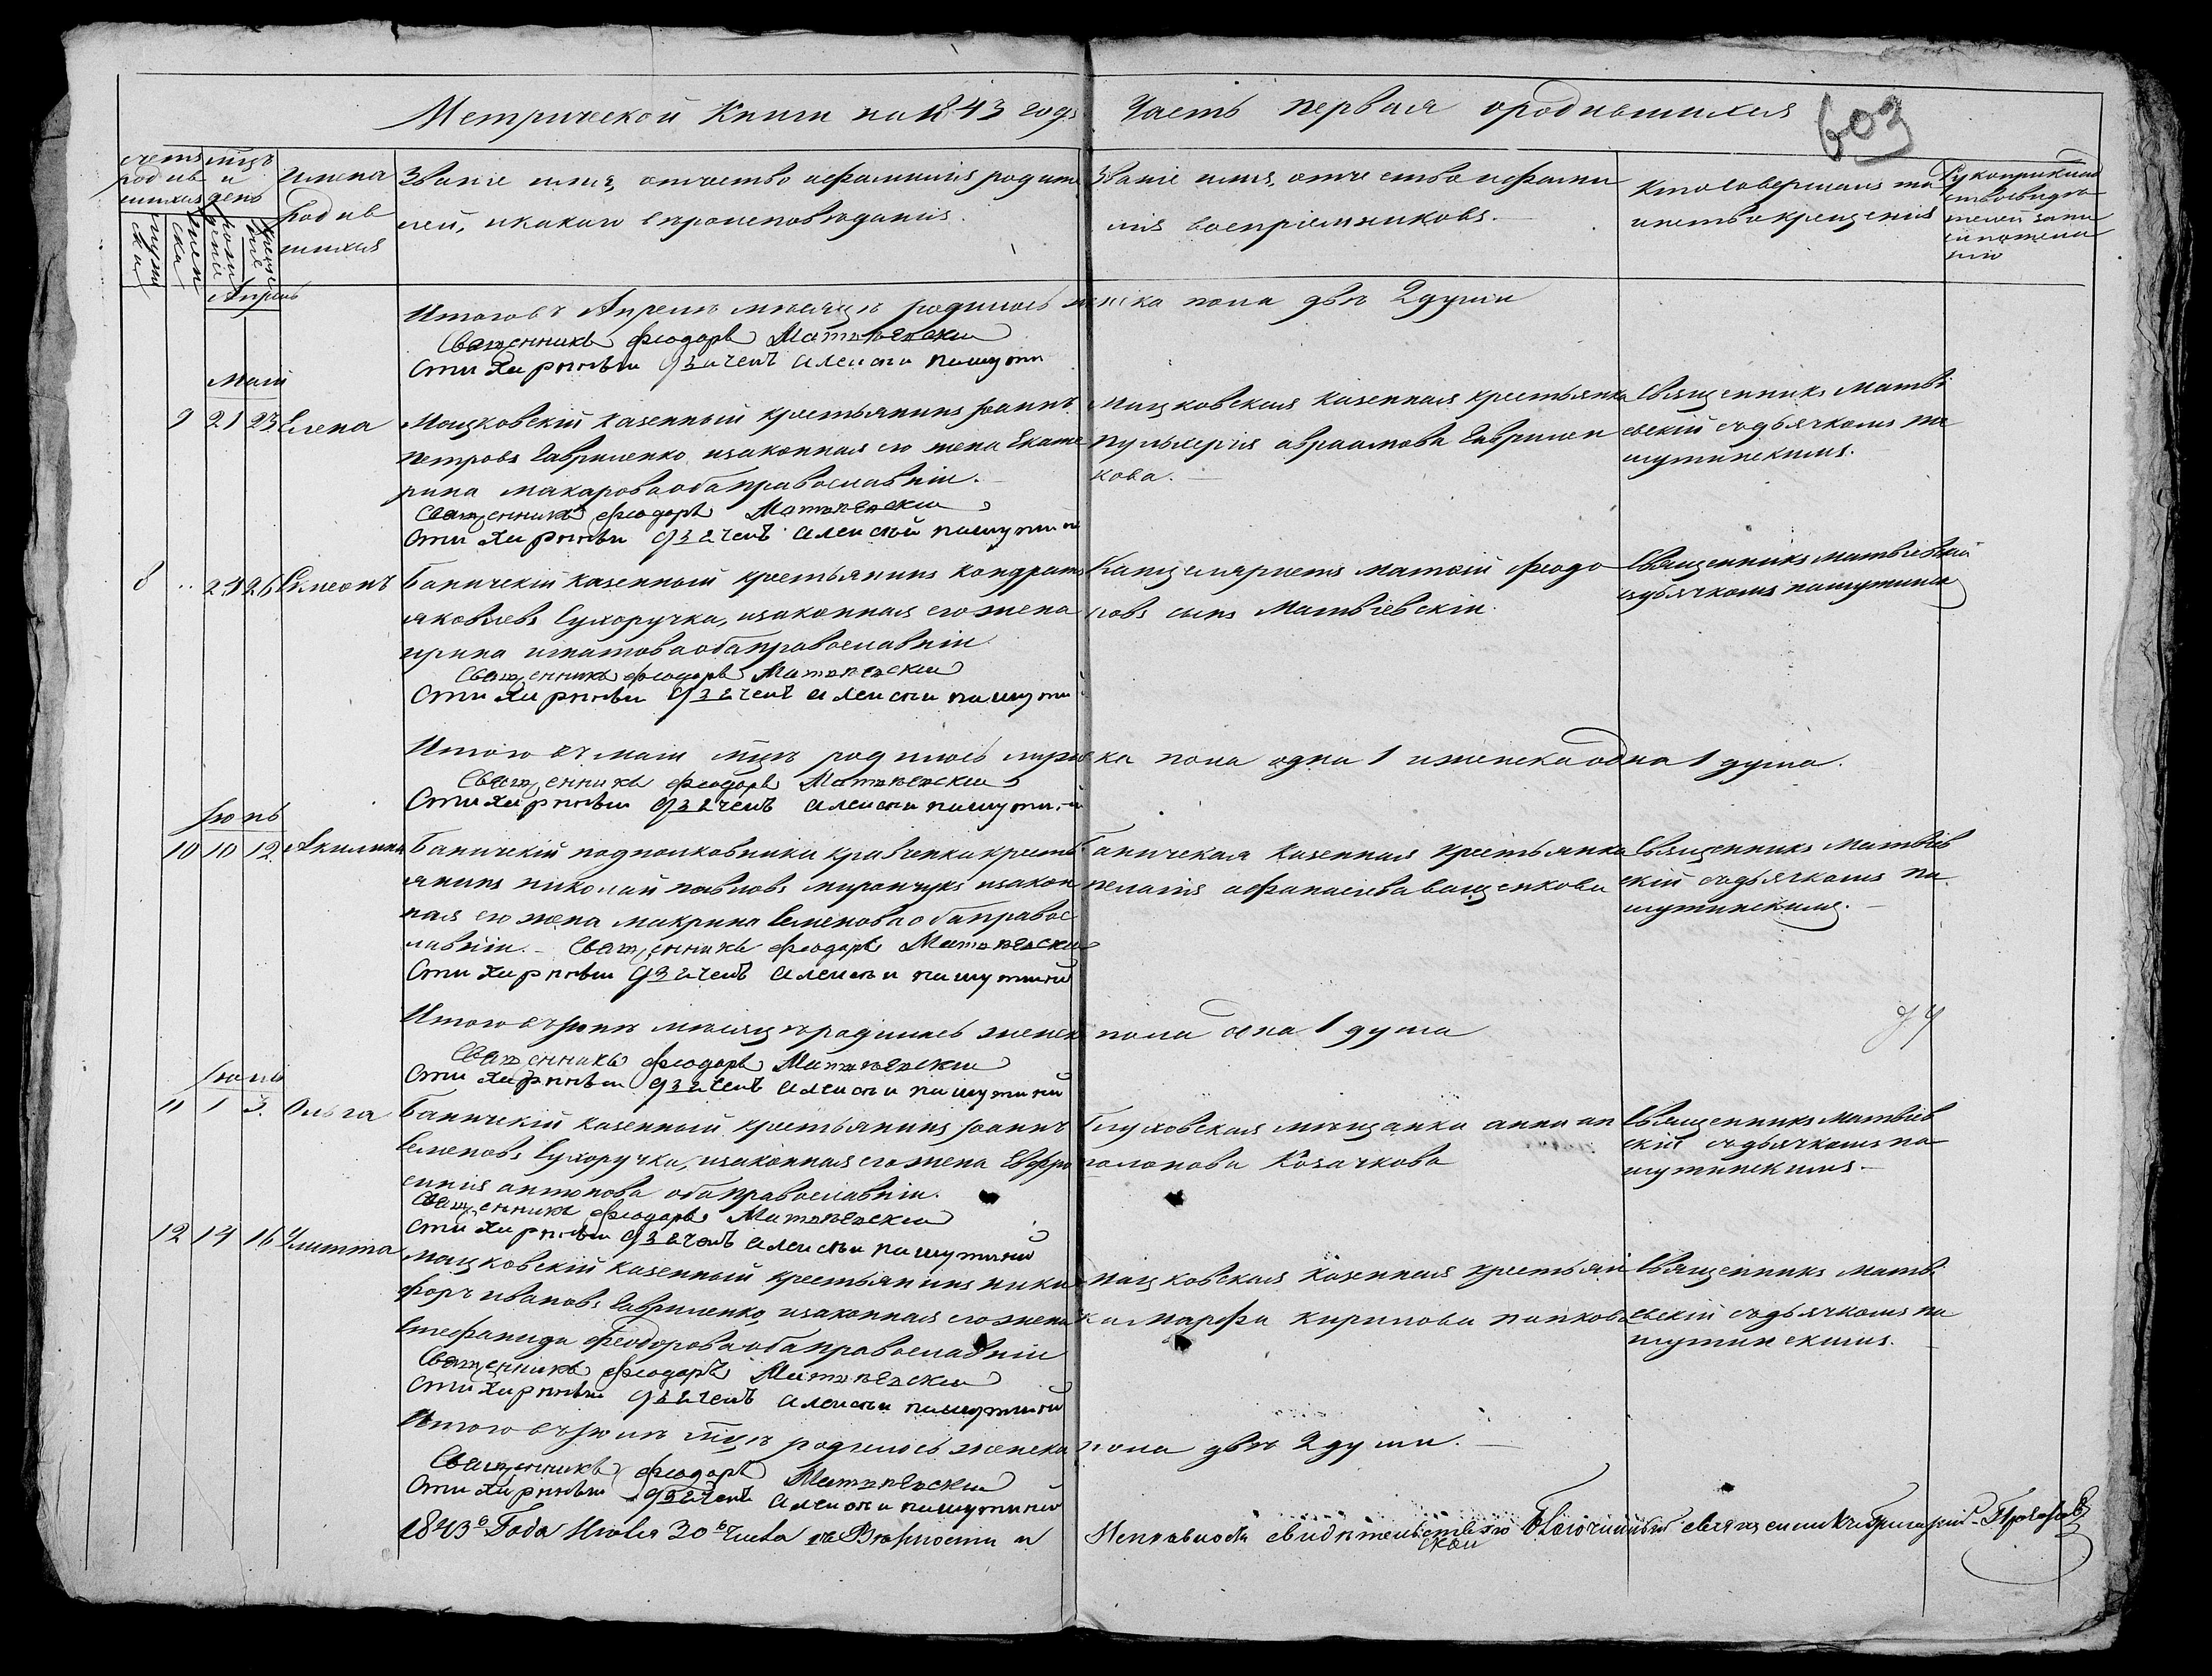 Метрической Книги на 1843 годъ Часть первая о родившихся
603
счетъ родив шихся
мцъ и день
Имена Родив шихся
Званіе имя, отчество и фамилія родите лей, и какаго вѣроисповѣданія.
Званіе имя, отчество и фами лія воспріемниковъ.
Кто совершалъ та инство крещенія
Рукоприклад ство свидѣ телей записи по жела нію
мужи ска
женска
рожденія
крещеніе
Апрель
Итого въ Апрелѣ мѣсяцѣ родилось женска пола двѣ 2 души
Священникъ Феодоръ Матвѣевскій
Стихирный дьячекъ Алексѣй Пашутин
Маій
9 21 23 Елена
Мацковскій казенный крестьянинъ Іоаннъ
Петровъ Гавриленко и законная его жена Екате
рина Макарова оба православніи.
Священникъ Феодоръ Матвѣевскій
Стихирный дьячекъ Алексѣй Пашутин
Мацковская казенная крестьянка
Пульхерія Авраамова Гаврилен
кова.
Священникъ Матвѣ
евскій съ дьячкомъ Па
шутинскимъ.
8 .. 24 26 Симеонъ
Баничскій казенный крестьянинъ Кондратъ
Яковлевъ Сухоручка, и законная его жена
Ирина Игнатова оба православніи
Священникъ Феодоръ Матвѣевскій
Стихирный дьячекъ Алексѣй Пашутин
Канцеляристъ Матвій Феодо
ровъ сынъ Матвѣевскій.
Священникъ Матвѣевскій
съ дьячкомъ Пашутинск
Итого въ маіи мцѣ родилось мужеска пола одна 1 и женска одна 1 душа.
Священникъ Феодоръ Матвѣевскій
Стихирный дьячекъ Алексѣй Пашутин
Іюнь
10 10 12 Акилина
Баничскій подполковника Кравченка кресть
янинъ Николай Павловъ Мирончукъ и закон
ная его жена Макрина Семенова оба правос
лавніи. Священникъ Феодоръ Матвѣевскій
Стихирный дьячекъ Алексѣй Пашутиній
Баничская казенная крестьянка
Пелагія Афанасіева Ващенкова
Священникъ Матвѣев
скій съ дьячкомъ Па
шутинскимъ.
Итого въ Іюнѣ мѣсяцѣ родилась женска пола одна 1 душа
Священникъ Феодоръ Матвѣевскій
Стихирный дьячекъ Алексѣй Пашутиній
Іюль
11 1 3. Ольга
Баничскій казенный крестьянинъ Іоаннъ
Семеновъ Сухоручка, и законная его жена Евфро
синія Антонова оба православніи.
Священникъ Феодоръ Матвѣевскій
Стихирный дьячекъ Алексѣй Пашутиній
Глуховская мѣщанка Анна Ап
полонова Козачкова
Священникъ Матвѣев
скій съ дьячкомъ Па
шутинскимъ.
12 14 16 Улитта
Мацковскій казенный крестьянинъ Ники
форъ Ивановъ Гавриленко, и законная его жена
Стефанида Феодорова оба православніи
Священникъ Феодоръ Матвѣевскій
Стихирный дьячекъ Алексѣй Пашутиній
Мацковская казенная крестьян
ка Марфа Кирилова Папкова
Священникъ Матвѣ
евскій съ дьячкомъ Па
шутинскимъ.
Итого въ Іюлѣ мцѣ родилось женска пола двѣ 2 души.
Священникъ Феодоръ Матвѣевскій
Стихирный дьячекъ Алексѣй Пашутиній
1843 Года Июля 30 числа въ Вѣрности и Исправности свидѣтельствую Благочинный священникъ Григорій